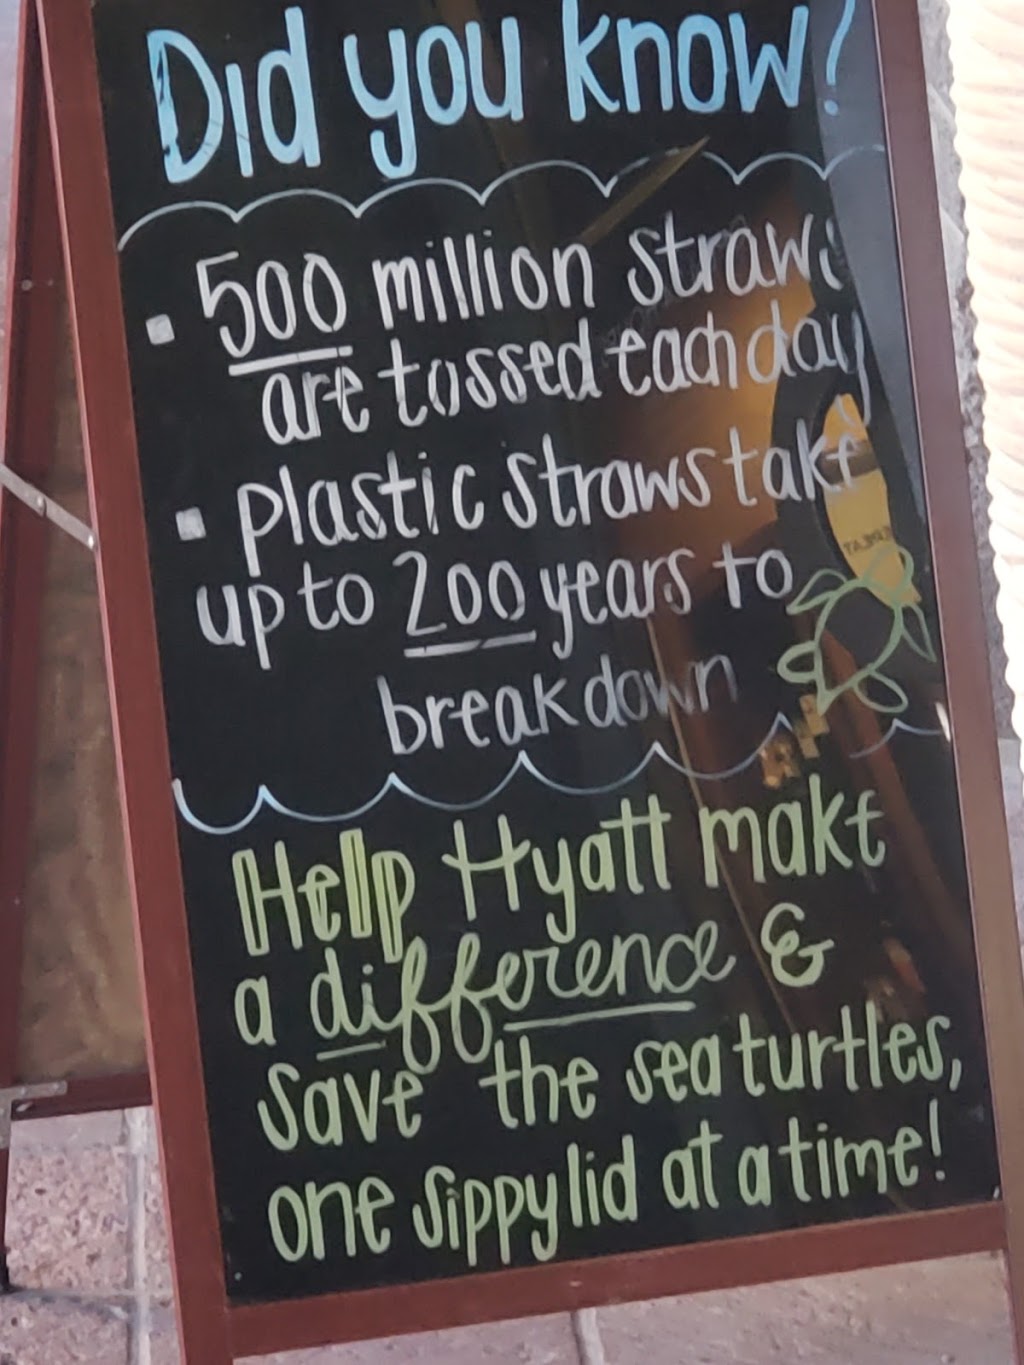 Did you know?
▪ 500 million straws
are tossed each day
▪ plastic straws take
up to 200 years to
break down
Help Hyatt make
a difference &
save the sea turtles,
one sippy lid at a time!